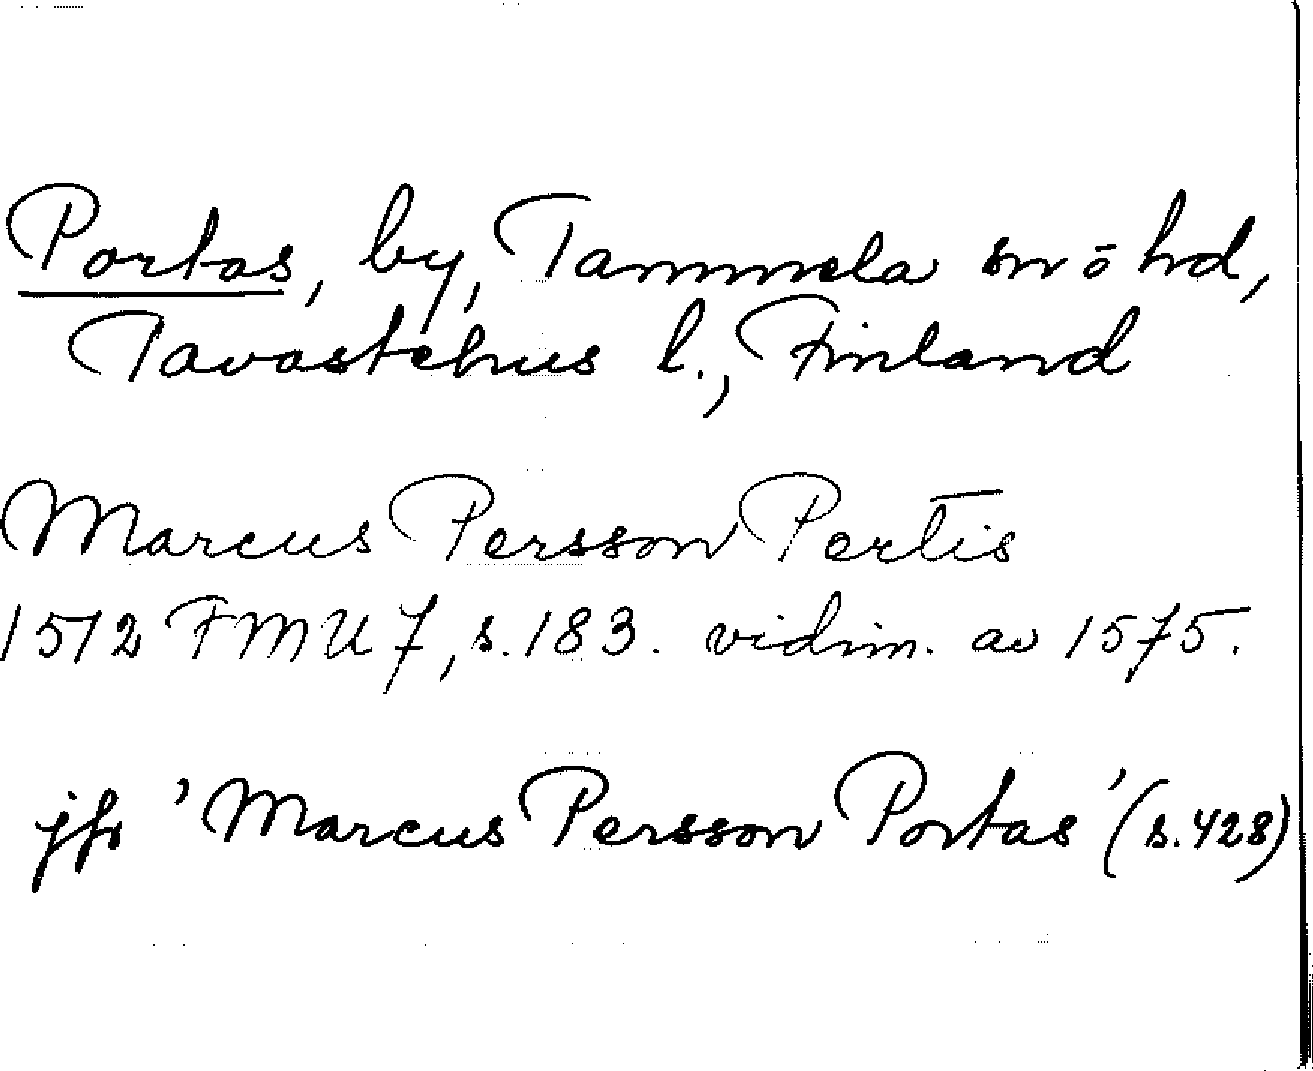 Portas, by, Tammela sn o hd,
Tavastehus l., Finland
Marcus Persson Pertis
1512 FMU 7, s. 183. vidim. av 1575.
jfr 'Marcus Persson Portas' (s. 428)